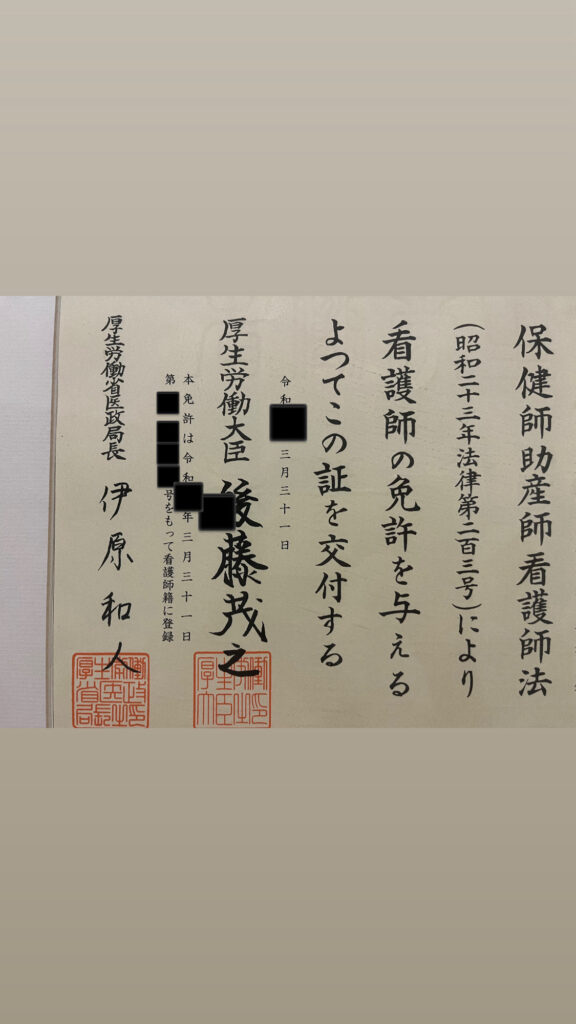 保健師助産師看護師法
(昭和二十三年法律第二百三号)により
看護師の免許を与える
よつてこの証を交付する
令和 三月三十一日
厚生労働大臣 後藤茂之
本免許は令和 年三月三十一日
第 号をもって看護師籍に登録
厚生労働省医政局長 伊原和人